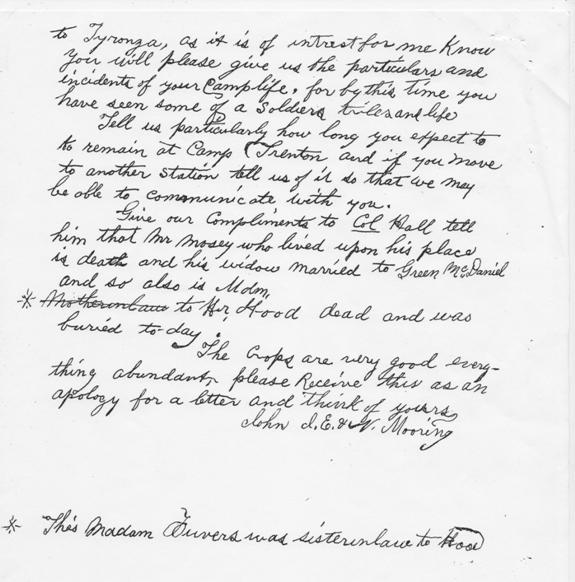 to Tyronza, as it is of intrest for me Know
you will please give us the particulars and
incidents of your Camp life, for by this time you
have seen some of a Soldiers trials and life
Tell us particularly how long you expect to
to remain at Camp Trenton and if you move
to another Station tell us of it so that we may
be able to communicate with you.
Give our Compliments to Col Hall tell
him that Mr Mosey who lived upon his place
is death and his widow married to Green McDaniel
and so also is Mdm,
* Motherinlaw to Hood dead and was
buried to day.
The Crops are very good every-
thing abundant, please Receive this as an
apology for a letter and think of yours
John I. E. & N. Mooring
* This Madam was sisterinlaw to Hood